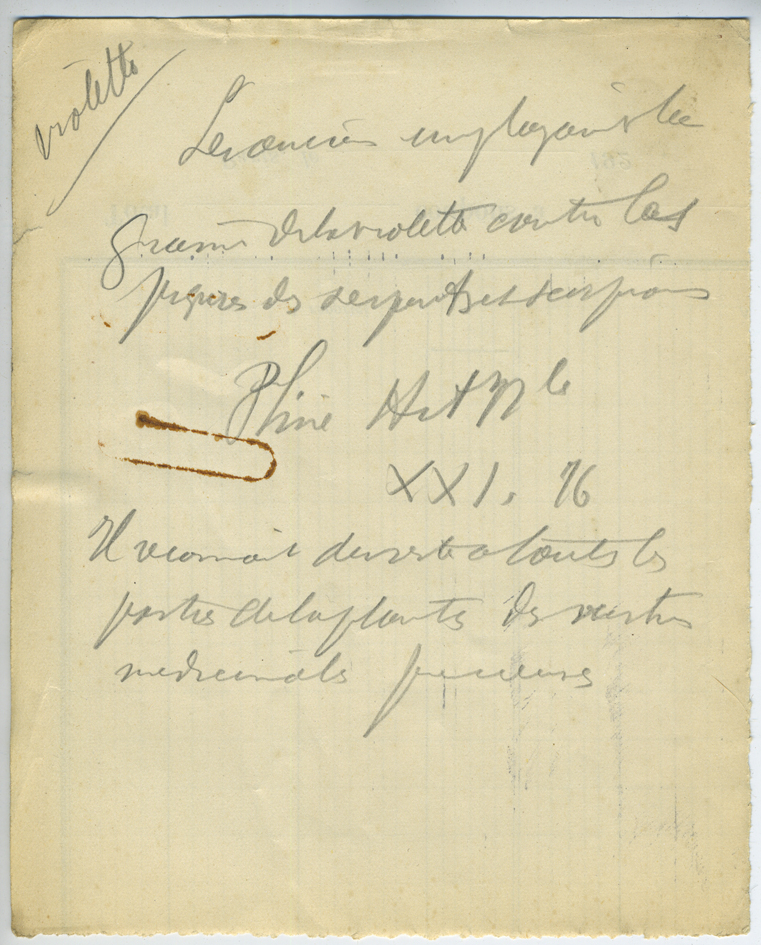 violette
Les anciens employaient la
graine de la violette contre les
piqures des serpents et scorpions
Pline Hist Nlle
XXI, 76
Il reconnait du reste a toutes les
parties de la plante des vertus
medicinales precieuses